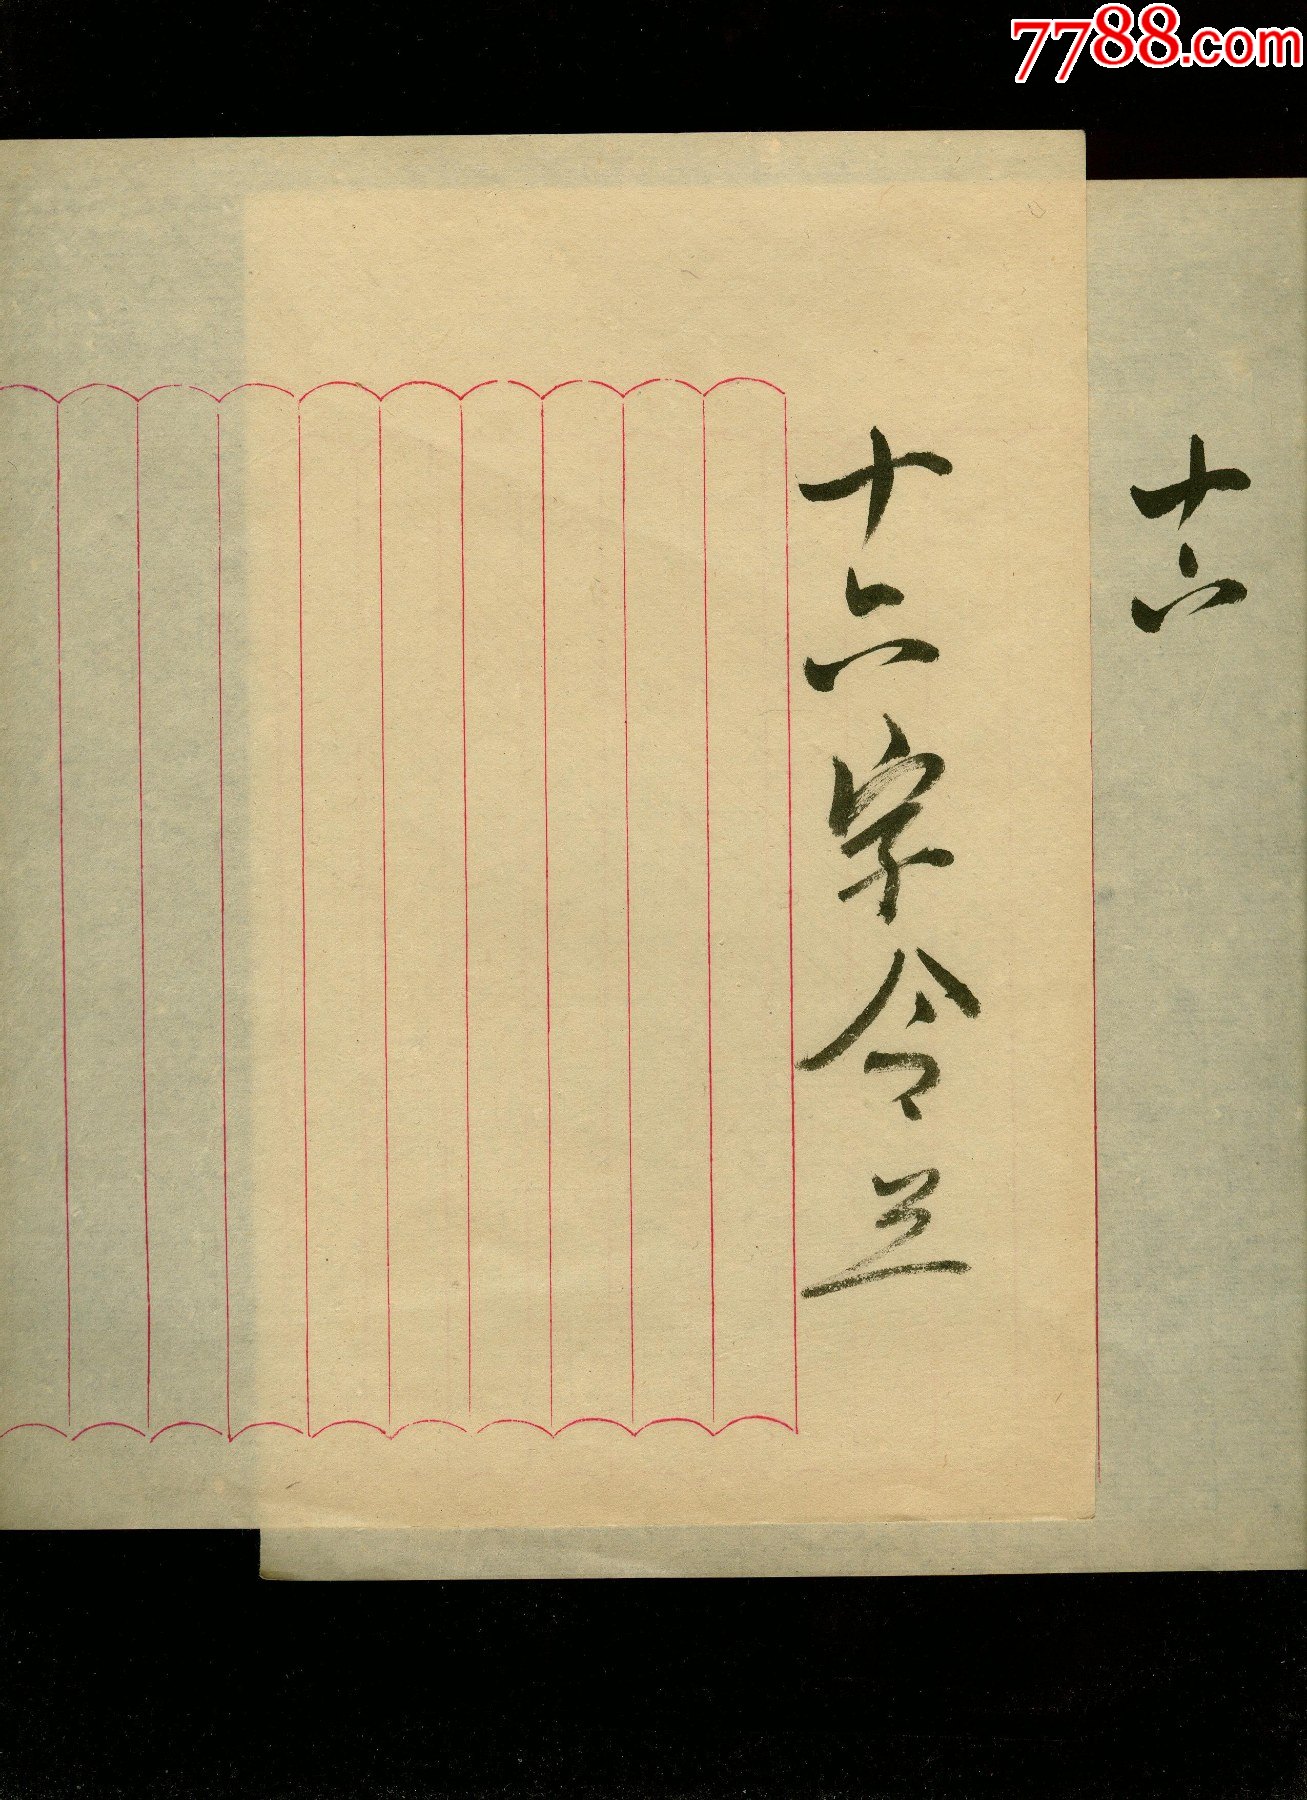 7788.com
十六
十六字令三